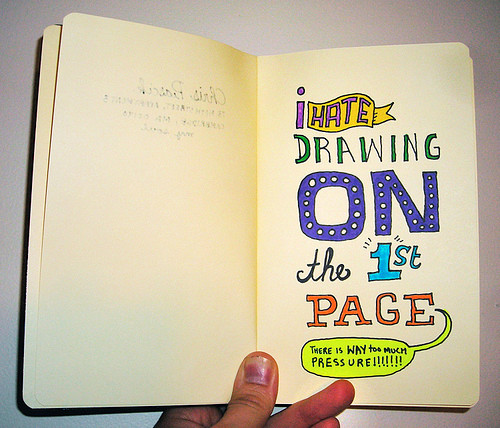 Chris Piascik
i HATE
DRAWING
ON
the 1st
PAGE
THERE IS WAY too MUCH
PRESSURE!!!!!!